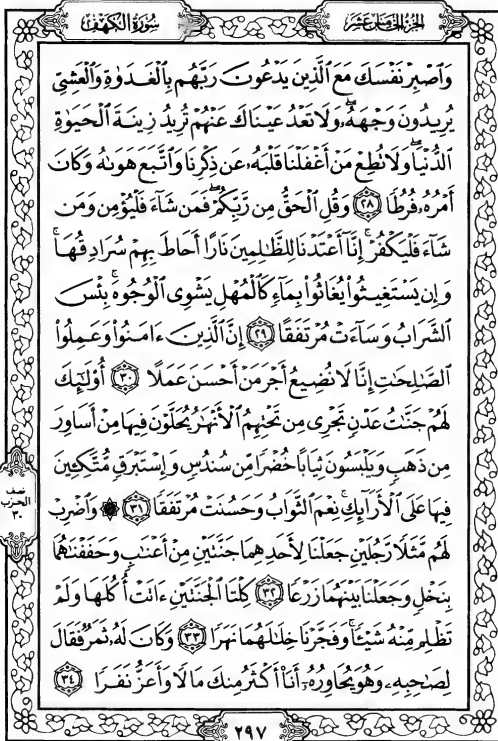 سُورَةُ الكَهْفِ
الجُزْءُ الخَامِسَ عَشَرَ
وَٱصْبِرْ نَفْسَكَ مَعَ ٱلَّذِينَ يَدْعُونَ رَبَّهُم بِٱلْغَدَوٰةِ وَٱلْعَشِيِّ
يُرِيدُونَ وَجْهَهُۥۖ وَلَا تَعْدُ عَيْنَاكَ عَنْهُمْ تُرِيدُ زِينَةَ ٱلْحَيَوٰةِ
ٱلدُّنْيَاۖ وَلَا تُطِعْ مَنْ أَغْفَلْنَا قَلْبَهُۥ عَن ذِكْرِنَا وَٱتَّبَعَ هَوَىٰهُ وَكَانَ
أَمْرُهُۥ فُرُطًا ٢٨ وَقُلِ ٱلْحَقُّ مِن رَّبِّكُمْۖ فَمَن شَآءَ فَلْيُؤْمِن وَمَن
شَآءَ فَلْيَكْفُرْۚ إِنَّآ أَعْتَدْنَا لِلظَّٰلِمِينَ نَارًا أَحَاطَ بِهِمْ سُرَادِقُهَاۚ
وَإِن يَسْتَغِيثُوا۟ يُغَاثُوا۟ بِمَآءٍ كَٱلْمُهْلِ يَشْوِى ٱلْوُجُوهَۚ بِئْسَ
ٱلشَّرَابُ وَسَآءَتْ مُرْتَفَقًا ٢٩ إِنَّ ٱلَّذِينَ ءَامَنُوا۟ وَعَمِلُوا۟
ٱلصَّٰلِحَٰتِ إِنَّا لَا نُضِيعُ أَجْرَ مَنْ أَحْسَنَ عَمَلًا ٣٠ أُو۟لَٰٓئِكَ
لَهُمْ جَنَّٰتُ عَدْنٍ تَجْرِى مِن تَحْتِهِمُ ٱلْأَنْهَٰرُ يُحَلَّوْنَ فِيهَا مِنْ أَسَاوِرَ
مِن ذَهَبٍ وَيَلْبَسُونَ ثِيَابًا خُضْرًا مِّن سُندُسٍ وَإِسْتَبْرَقٍ مُّتَّكِـِٔينَ
فِيهَا عَلَى ٱلْأَرَآئِكِۚ نِعْمَ ٱلثَّوَابُ وَحَسُنَتْ مُرْتَفَقًا ٣١ ۞ وَٱضْرِبْ
لَهُم مَّثَلًا رَّجُلَيْنِ جَعَلْنَا لِأَحَدِهِمَا جَنَّتَيْنِ مِنْ أَعْنَٰبٍ وَحَفَفْنَٰهُمَا
بِنَخْلٍ وَجَعَلْنَا بَيْنَهُمَا زَرْعًا ٣٢ كِلْتَا ٱلْجَنَّتَيْنِ ءَاتَتْ أُكُلَهَا وَلَمْ
تَظْلِم مِّنْهُ شَيْـًٔاۚ وَفَجَّرْنَا خِلَٰلَهُمَا نَهَرًا ٣٣ وَكَانَ لَهُۥ ثَمَرٌ فَقَالَ
لِصَٰحِبِهِۦ وَهُوَ يُحَاوِرُهُۥٓ أَنَا۠ أَكْثَرُ مِنكَ مَالًا وَأَعَزُّ نَفَرًا ٣٤
نصف
الحزب
٣٠
٢٩٧